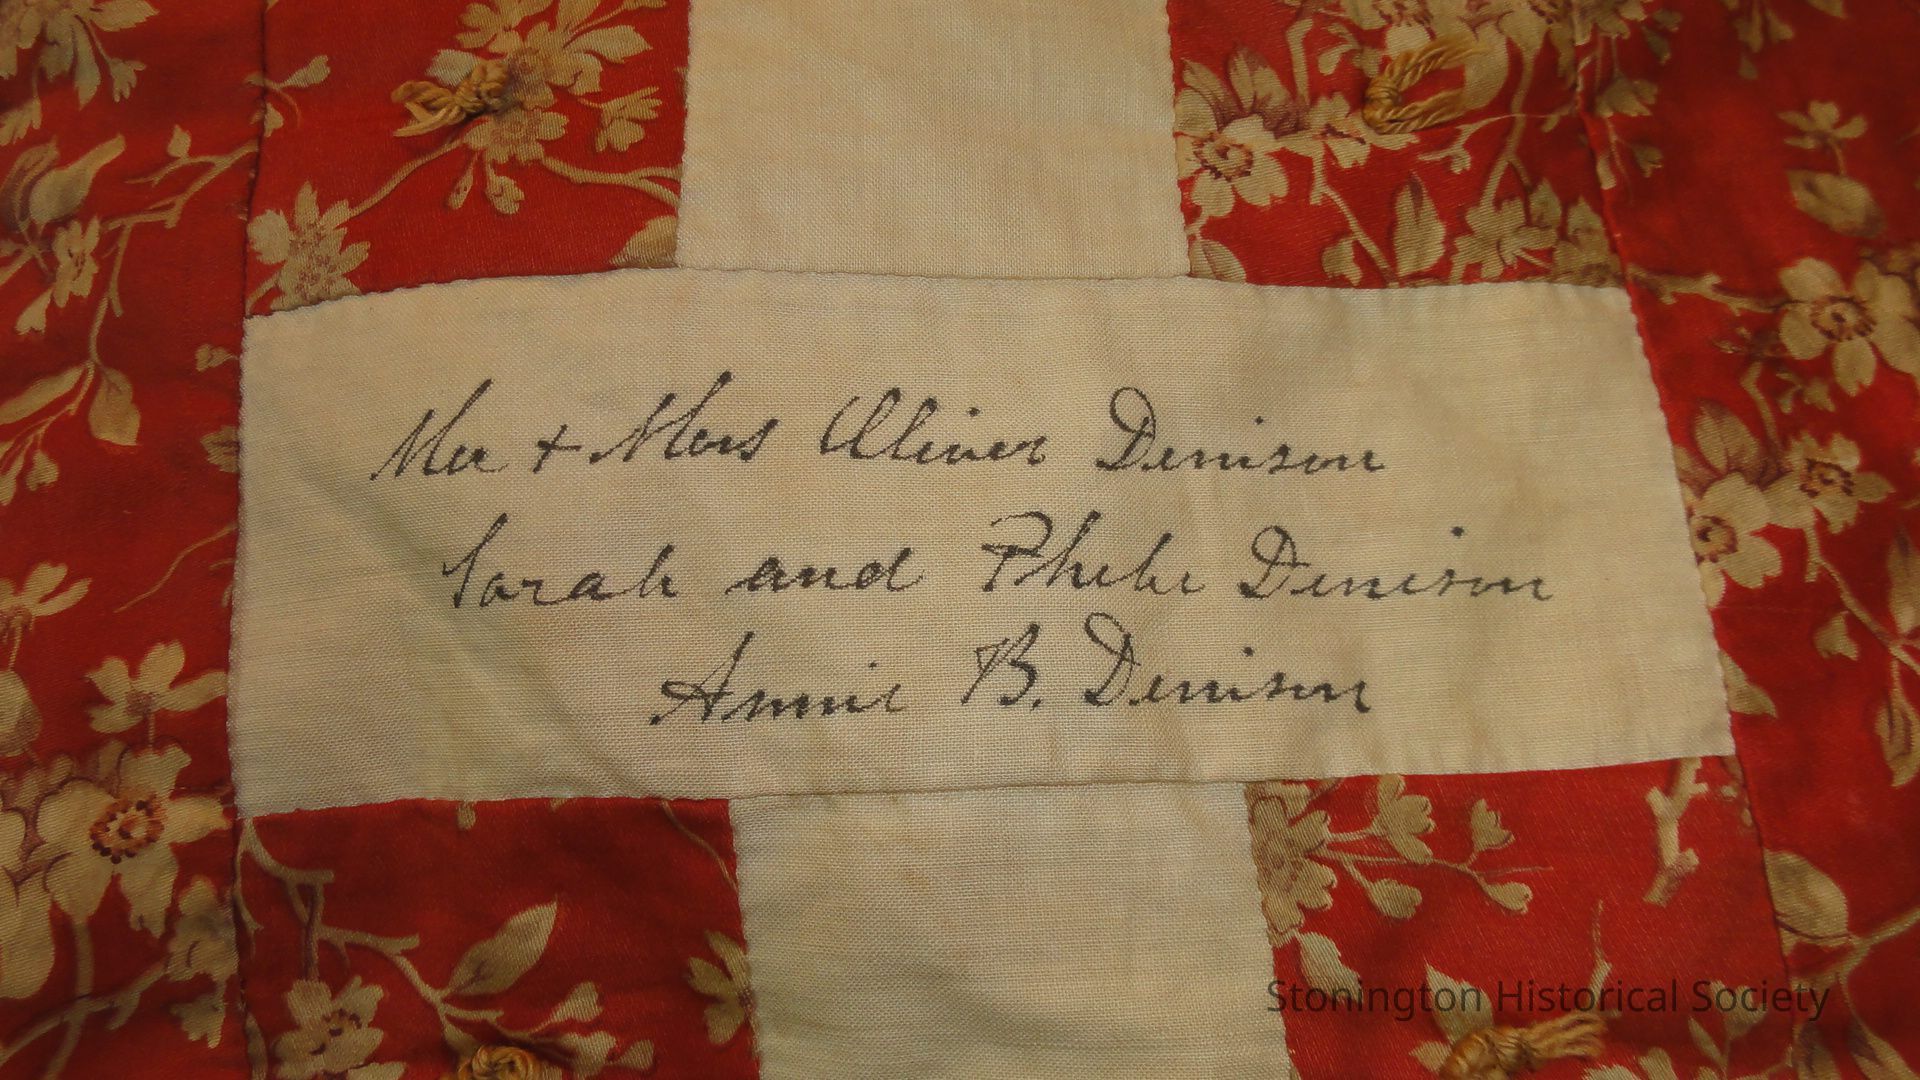 Mr + Mrs Oliver Denison
Sarah and Phebe Denison
Annie B. Denison
Stonington Historical Society